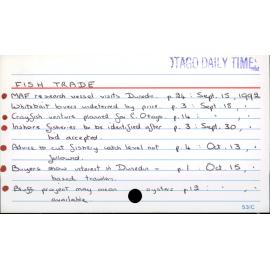 OTAGO DAILY TIMES
FISH TRADE
MAF research vessel visits Dunedin. p.24 : Sept. 15, 1992
Whitebait lovers undeterred by price. p. 3 : Sept. 18, "
Crayfish venture planned for C. Otago. p.14 : " "
Inshore fisheries to be identified after p. 3 : Sept. 30, "
bid accepted.
Advice to cut fishery catch level not p. 4 : Oct. 13, "
followed.
Buyers show interest in Dunedin - p. 1 : Oct. 15, "
based trawlers.
Bluff project may mean oysters p.12 : " "
available.
531C